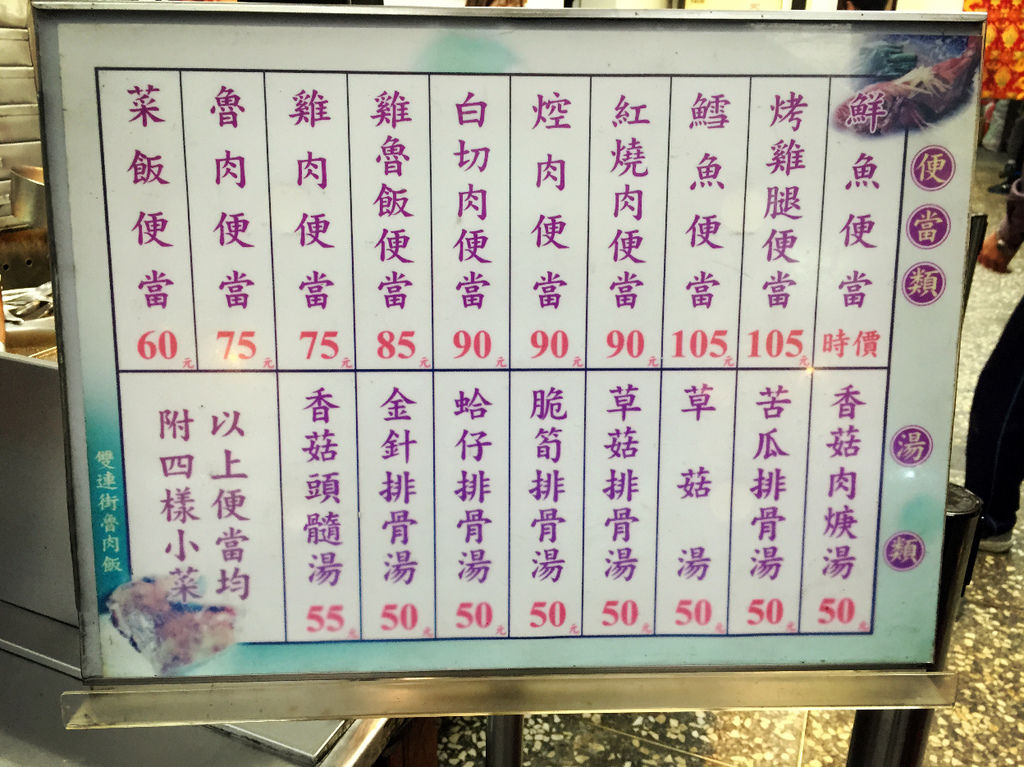 便當類
鮮魚便當 時價
烤雞腿便當 105元
鱈魚便當 105元
紅燒肉便當 90元
焢肉便當 90元
白切肉便當 90元
雞魯飯便當 85元
雞肉便當 75元
魯肉便當 75元
菜飯便當 60元
湯類
香菇肉焿湯 50元
苦瓜排骨湯 50元
草菇湯 50元
草菇排骨湯 50元
脆筍排骨湯 50元
蛤仔排骨湯 50元
金針排骨湯 50元
香菇頭髓湯 55元
以上便當均
附四樣小菜
雙連街魯肉飯